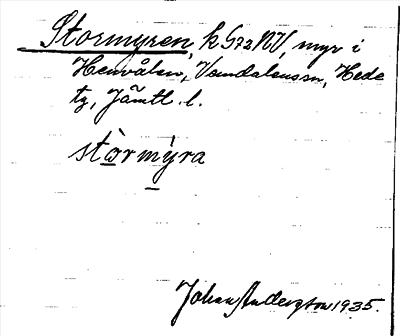 Stormyren, k G72NV, myr i
Henvålen, Vemdalens sn, Hede
tg, Jämtl. l.
stòrmýra
Johan Andersson 1935.